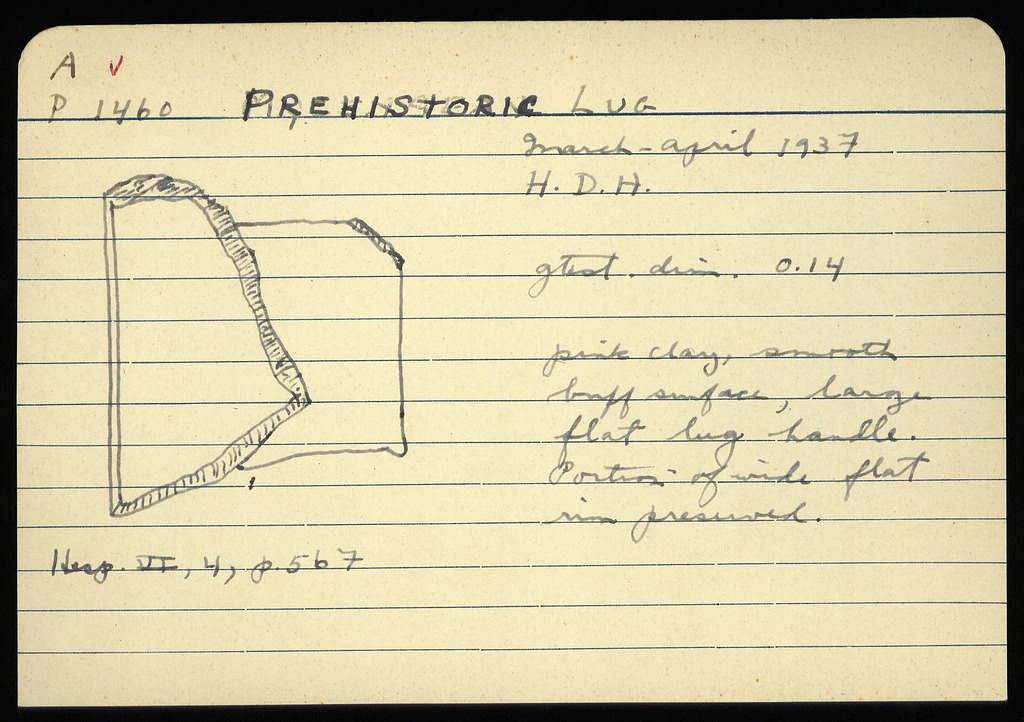 A ✓
P 1460 PREHISTORIC LUG
March-April 1937
H. D. H.
gtest. dim. 0.14
pink clay, smooth
buff surface, large
flat lug handle.
Portion of wide flat
rim preserved.
Hesp. VI, 4, p. 567